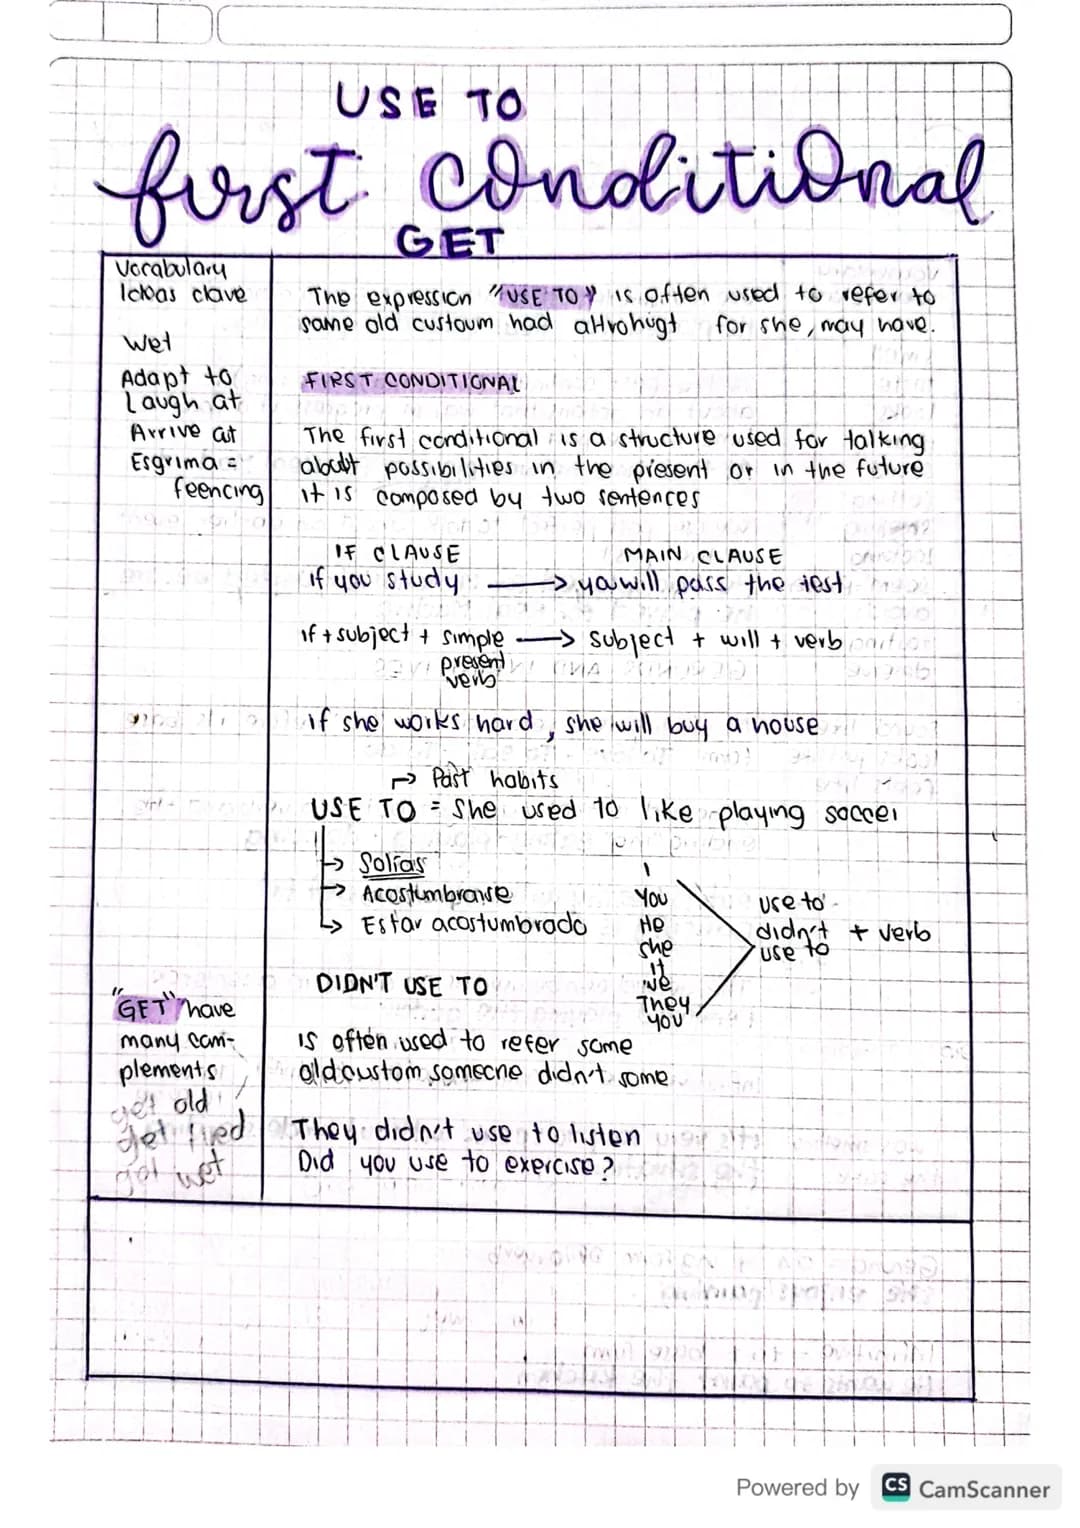 USE TO
first conditional
GET
Vocabulary
Ideas clave
Wet
Adapt to
Laugh at
Arrive at
Esgrima =
feencing
The expression "USE TO" is often used to refer to
some old custoum had attrohugt for she, may have.
FIRST CONDITIONAL
The first conditional is a structure used for talking
about possibilities in the present or in the future
it is composed by two sentences
IF CLAUSE MAIN CLAUSE
if you study → you will pass the test
if + subject + simple → subject + will + verb
present
verb
if she works hard, she will buy a house
→ Past habits
USE TO = She used to like playing soccer
→ Solías
→ Acostumbrarse
→ Estar acostumbrado
I
You
He
she
it
we
They
you
use to
didn't + verb
use to
DIDN'T USE TO
is often used to refer some
old custom someone didn't some
They didn't use to listen
Did you use to exercise?
"GET" have
many com-
plements
get old
get fired
get wet
Powered by CS CamScanner